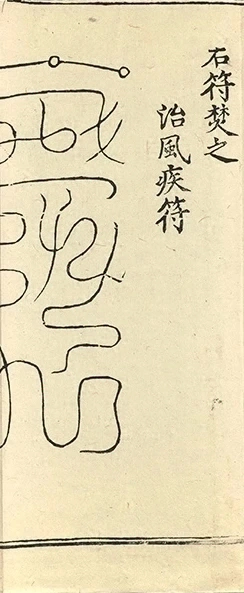 右符焚之
治風疾符